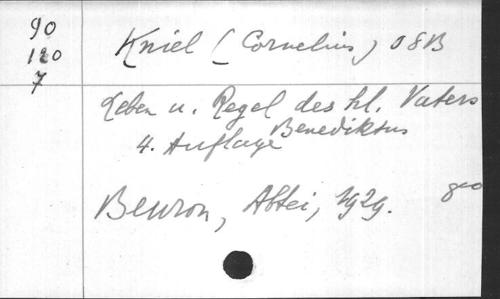 90
120
7
Kniel (Cornelius) OSB
Leben u. Regel des hl. Vaters
Benediktus
4. Auflage
Beuron, Abtei, 1929.
8°